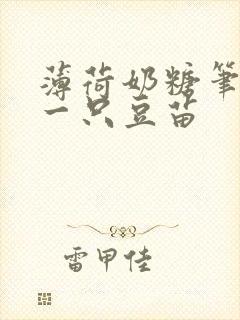 薄荷奶糖笔
一只豆苗
雷甲佳